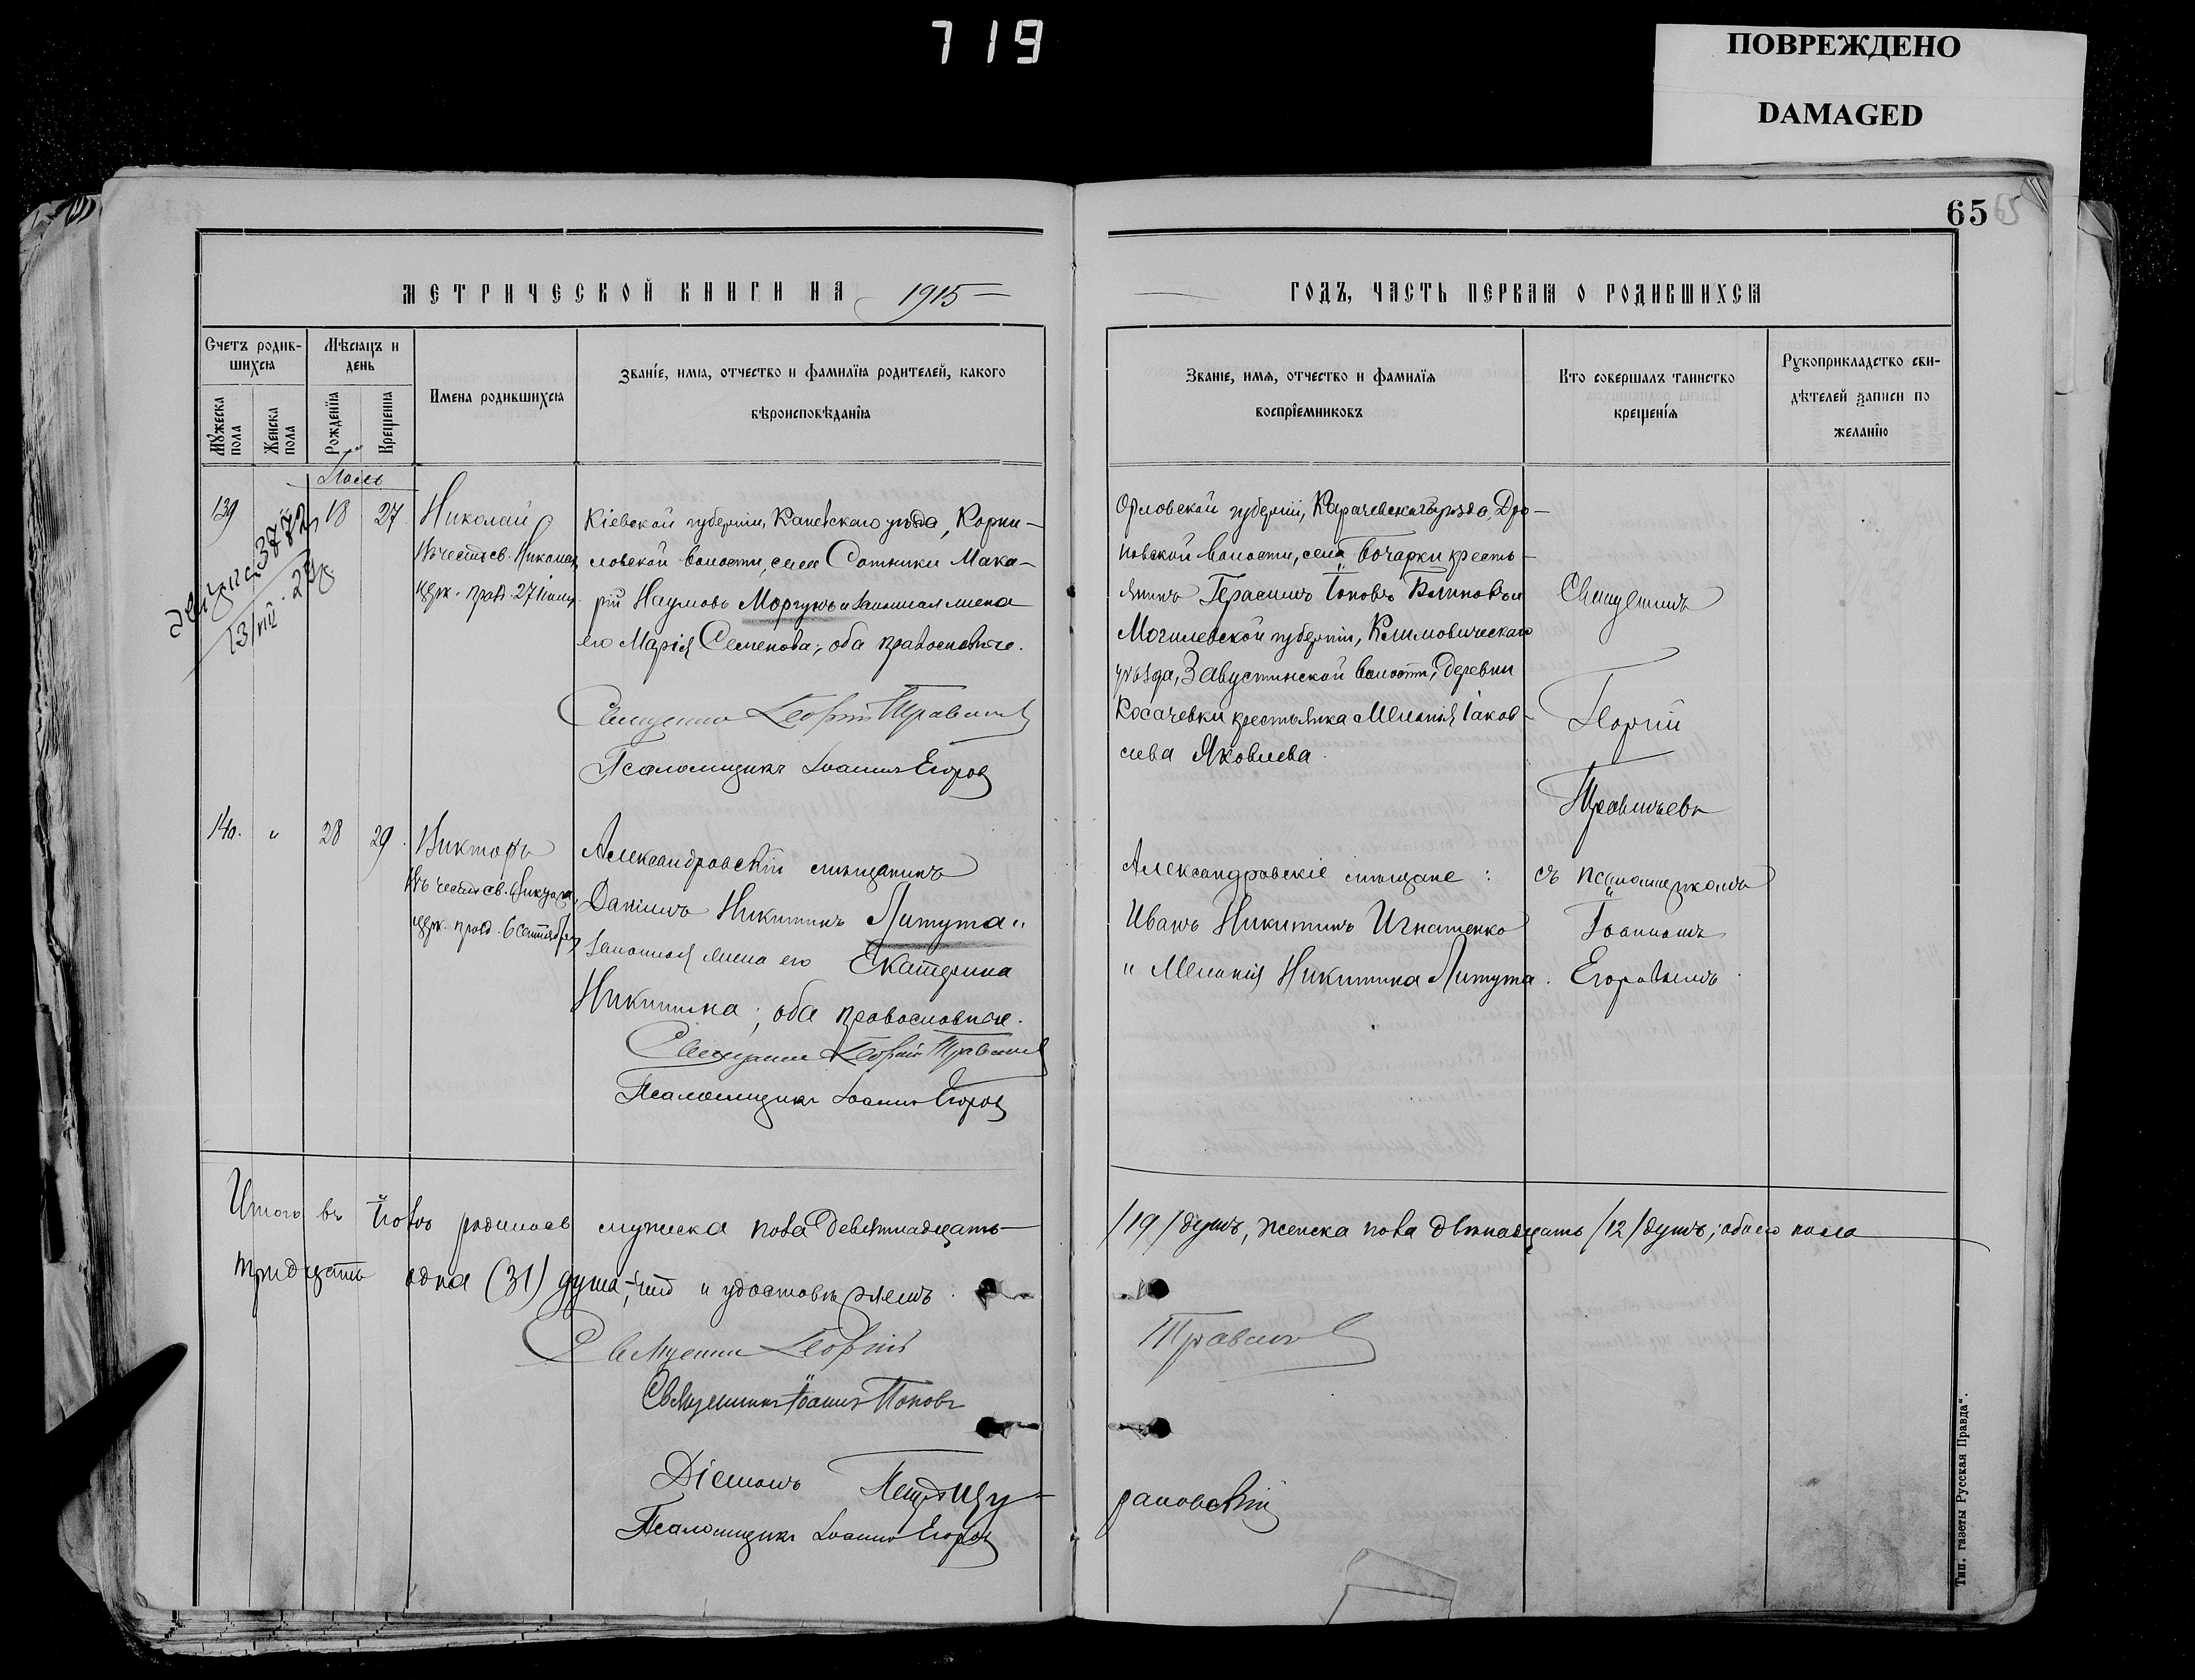 719
ПОВРЕЖДЕНО
DAMAGED
65
65
МЕТРИЧЕСКОЙ КНИГИ НА 1915
ГОДЪ, ЧАСТЬ ПЕРВАЯ О РОДИВШИХСЯ
Счетъ родив-
шихся
Мѣсяцъ и
день
Мужеска
пола
Женска
пола
Рожденїя
Крещенія
Имена родившихся
Званіе, имя, отчество и фамилїя родителей, какого
вѣроисповѣданїя
Званіе, имя, отчество и фамилїя
воспрїемниковъ
Кто совершалъ таинство
крещенїя
Рукоприкладство сви-
дѣтелей записи по
желанїю
Іюль
139
18
27
3772
13/VIII 29 г.
Николай
въ честь св. Николая
церк. празд. 27 іюля
Кіевской губерніи, Каневскаго уѣзда, Корни-
ловской волости, села Сотники Мака-
рій Наумовъ Моргунъ и законная жена
его Марія Семенова; оба православные.
Священникъ Георгій Травинъ
Псаломщикъ Іоаннъ Егоровъ
Орловской губерніи, Карачевскаго уѣзда, Дро-
новской волости, села Бочарки кресть-
янинъ Герасимъ Іововъ Блиновъ и
Могилевской губерніи, Климовическаго
уѣзда, Забустинской волости, деревни
Косачевки крестьянка Меланія Іаков-
лева Яковлева.
Священникъ
Георгій
съ псаломщикомъ
Іоанномъ
Егоровымъ.
140.
"
28
29
Викторъ
въ честь св.
церк. празд. 6 сентября
Александровскій мѣщанинъ
Даніилъ Никитинъ Литута и
законная жена его Екатерина
Никитина; оба православные.
Священникъ Георгій
Псаломщикъ Іоаннъ Егоровъ
Александровскіе мѣщане:
Иванъ Никитинъ Игнатенко
и Меланія Никитина Литута.
Итого въ Іюлѣ родилось мужеска пола девятнадцать
/19/ душъ, женска пола двѣнадцать /12/ душъ; обоего пола
тридцать одна (31) душа, что и удостовѣряемъ.
Священникъ Георгій
Священникъ Іоаннъ Поповъ
Діаконъ Петръ Цу-
рановскій
Псаломщикъ Іоаннъ Егоровъ
Тип. газеты Русская Правда".